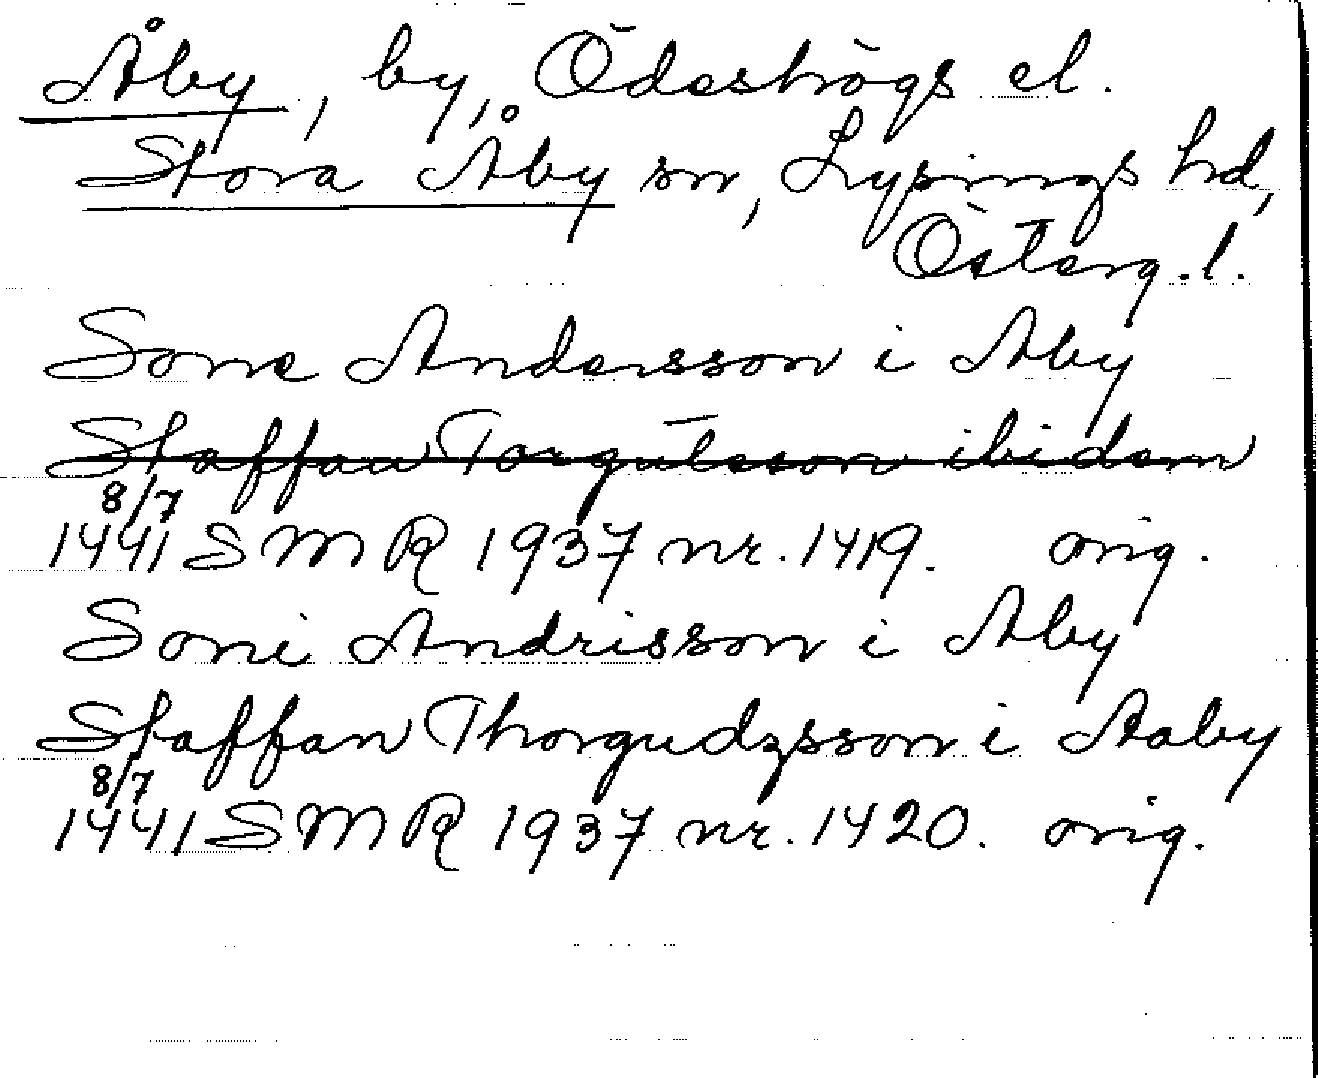 Åby, by, Ödeshögs el.
Stora Åby sn, Lysings hd,
Österg.l.
Sone Andersson i Aby
Staffan Torgutsson ibidem
8/7
1441 SMR 1937 nr. 1419. orig.
Soni Andrisson i Aby
Staffan Thorgudzsson i Aaby
8/7
1441 SMR 1937 nr. 1420. orig.